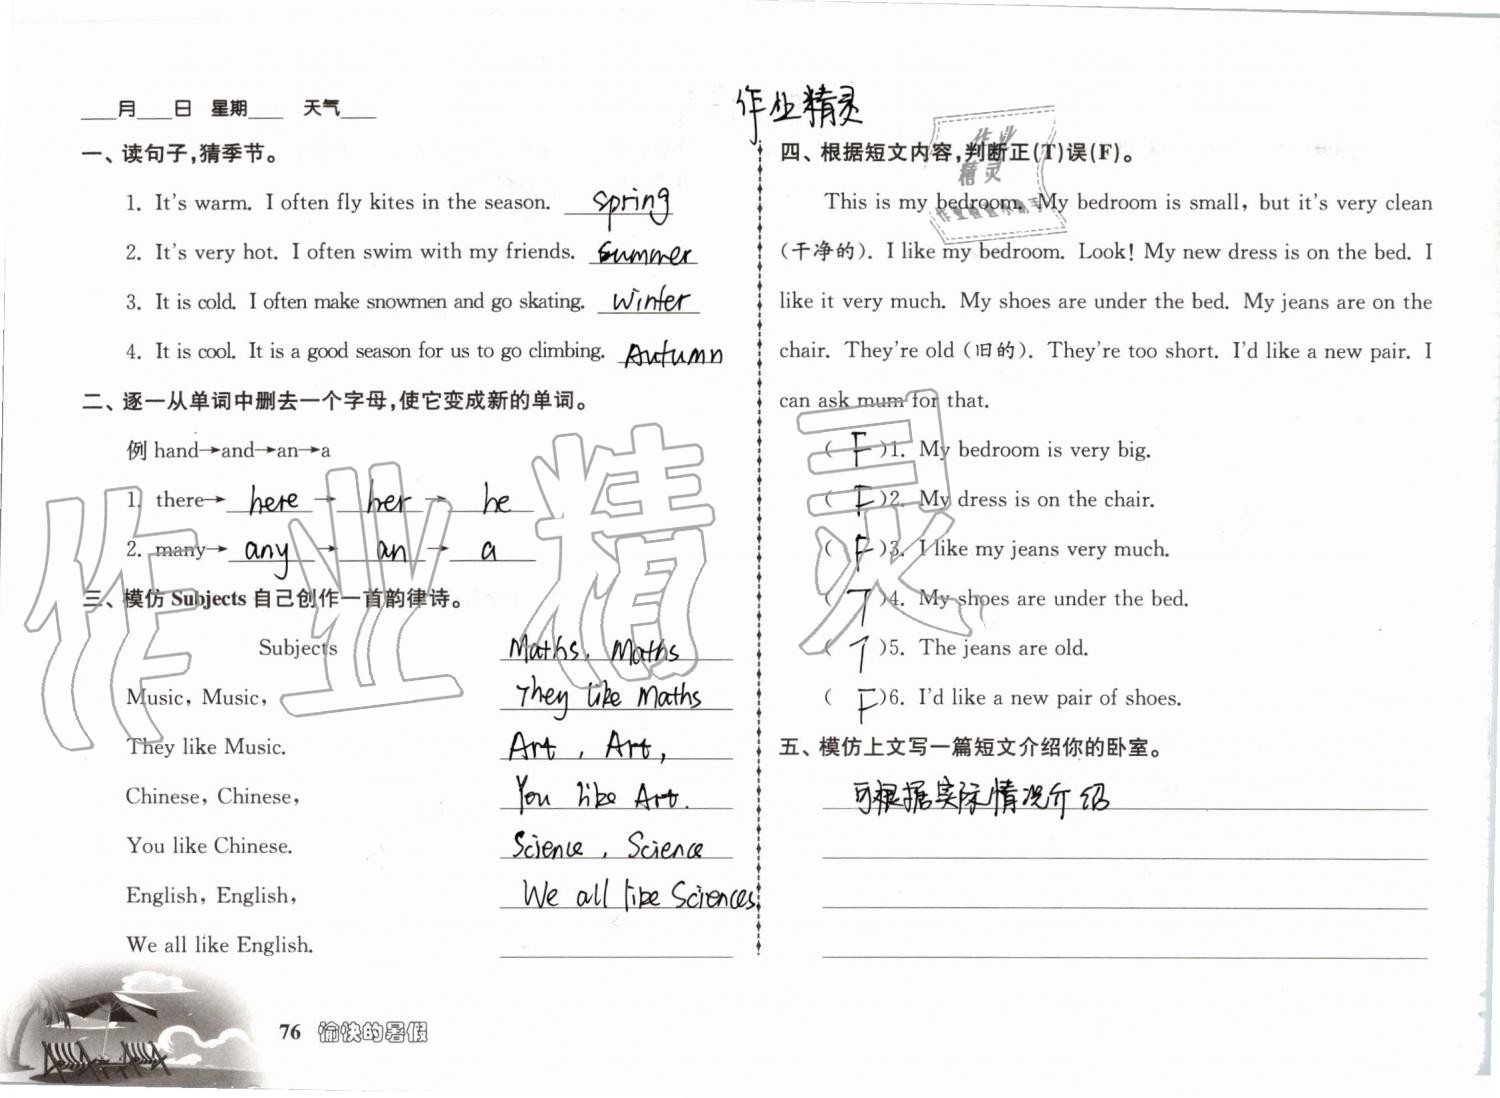 ___月___日 星期___ 天气___
一、读句子,猜季节。
1. It's warm. I often fly kites in the season. spring
2. It's very hot. I often swim with my friends. summer
3. It is cold. I often make snowmen and go skating. winter
4. It is cool. It is a good season for us to go climbing. Autumn
二、逐一从单词中删去一个字母,使它变成新的单词。
例 hand→and→an→a
1. there→ here → her → he
2. many→ any → an → a
三、模仿 Subjects 自己创作一首韵律诗。
Subjects
Music, Music,
They like Music.
Chinese, Chinese,
You like Chinese.
English, English,
We all like English.
Maths, Maths
They like Maths
Art, Art,
You like Art.
Science, Science
We all like Sciences
作业精灵
四、根据短文内容,判断正(T)误(F)。
This is my bedroom. My bedroom is small, but it's very clean
(干净的). I like my bedroom. Look! My new dress is on the bed. I
like it very much. My shoes are under the bed. My jeans are on the
chair. They're old (旧的). They're too short. I'd like a new pair. I
can ask mum for that.
( F )1. My bedroom is very big.
( F )2. My dress is on the chair.
( F )3. I like my jeans very much.
( T )4. My shoes are under the bed.
( T )5. The jeans are old.
( F )6. I'd like a new pair of shoes.
五、模仿上文写一篇短文介绍你的卧室。
可根据实际情况介绍
76 愉快的暑假
作业
精灵
作业检查小助手
作业精灵